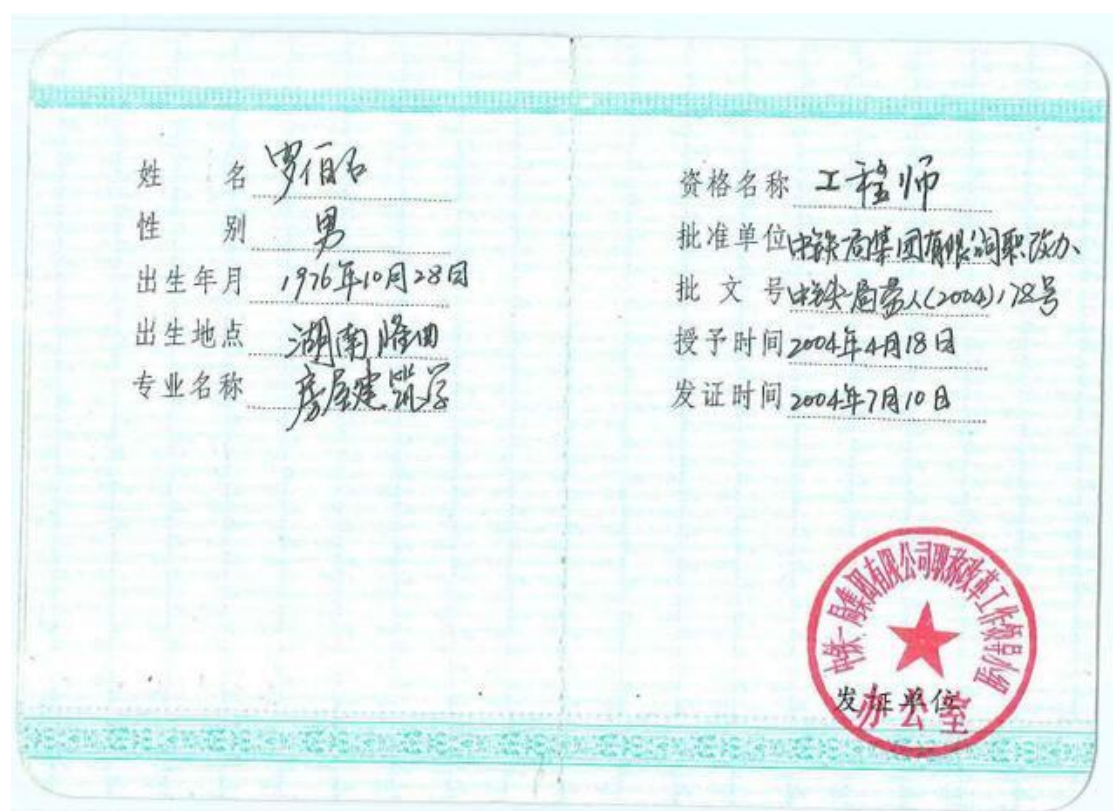 姓 名 罗伯石
性 别 男
出生年月 1976年10月28日
出生地点 湖南隆回
专业名称 房屋建筑学
资格名称 工程师
批准单位 中铁一局集团有限公司职改办
批文号 中铁一局劳人(2004)178号
授予时间 2004年4月18日
发证时间 2004年7月10日
中铁一局集团有限公司职称改革工作领导小组
发证单位
办公室